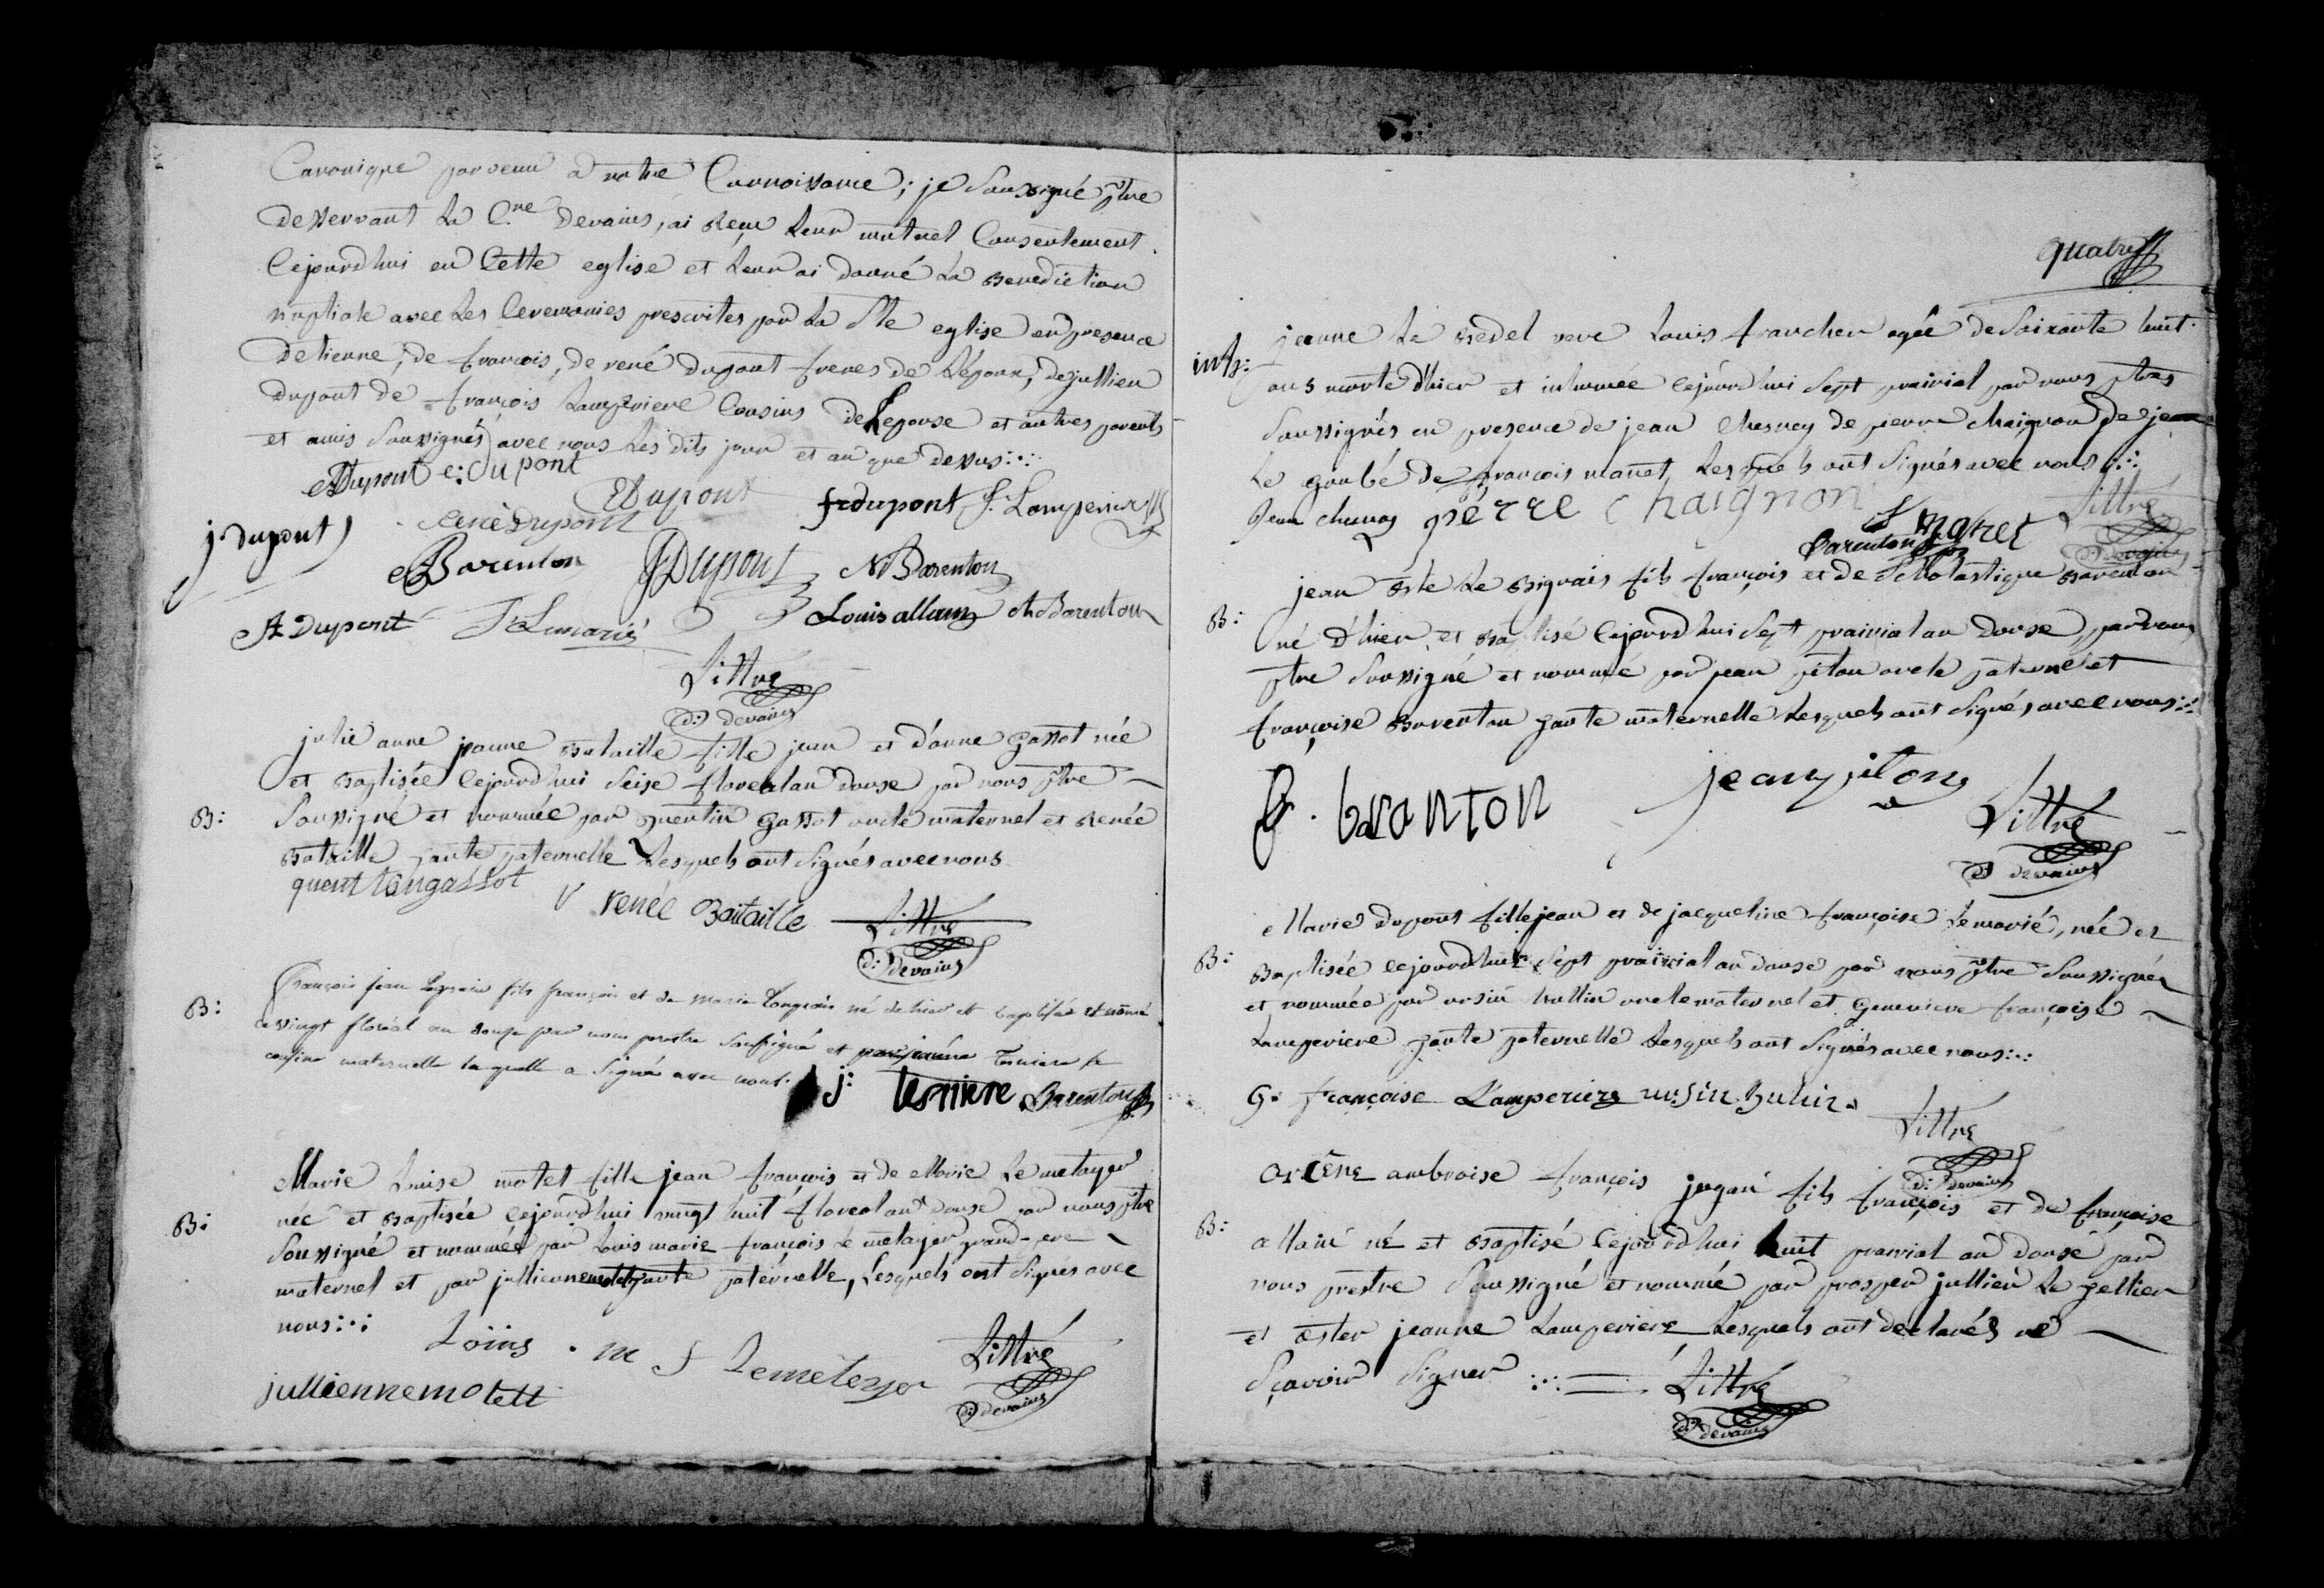 Canonique parvenu à notre Connoissance; je soussigné ptre
desservant la C.ne Devains, ai Reçu leur mutuel Consentement
Cejourdhui en Cette eglise et leur ai donné la Benediction
nuptiale avec les Ceremonies prescrites par la Ste eglise en presence
detienne, de françois, de rené dupont freres de L'époux, dejullien
dupont de françois Lamperiere Cousins de Lepouse et autres parents
et amis soussignés avec nous les dits jour et an que dessus
Dupont e: dupont
EDupont frdupont f. Lamperiere
j. dupont René Dupont
Barenton JDupont N Barenton
A Dupont F Lemarié Louis allain Barenton
Littré
d: devains
julie anne jeanne Bataille fille jean et d'anne Gassot née
et Baptisée Cejourdhui seise floreal an douse par nous ptre
B: soussigné et nommée par quentin Gassot oncle maternel et Renée
Bataille tante paternelle lesquels ont signés avec nous
quentin gassot
renée Bataille Littré
d: devains
François jean fils françois et de marie né de hier et baptisé et nomé
B: ce vingt floréal an douze par nous pretre soussigné et
cousine maternelle laquelle a signé avec nous. j: Barenton
Marie Louise motet fille jean françois et de Marie Le metayer
B: née et Baptisée Cejourdhui vingt huit floreal an douse par nous ptre
soussigné et nommée par Louis marie françois le metayer grand-pere
maternel et par jullienne motet tante paternelle, Lesquels ont signés avec
nous
Loüis . m f Lemeteyer Littré
jullienne motett d: devains
quatre
inh: jeanne Le Bedel veve Louis francher agée de soixante huit
ans morte d'hier et inhumée Cejourdhui sept prairial par nous ptres
soussignés en presence de jean Chesney de pierre chaignon de jean
Le goubé de françois manet Lesquels ont signés avec nous
Jean chesney pérre chaignon f manet Littré
Barenton d: devains
jean Bte Le Bignais fils françois et de Scholastique Barenton
B: né d'hier et Baptisé Cejourdhui sept prairial an douse par nous
ptre soussigné et nommé par jean piton oncle paternel et
françoise Barenton tante maternelle lesquels ont signés avec nous
f. baranton jean piton Littré
d: devains
Marie dupont fille jean et de jacqueline françoise Lemarié, née et
B: Baptisée Cejourdhui sept prairial an douse par nous ptre soussignés
et nommée par ursin hullin oncle maternel et Genevieve françoise
Lamperiere tante paternelle Lesquels ont signés avec nous
G. françoise Lamperiere ursin hulin Littré
d: devains
arcène ambroise françois jugan fils françois et de françoise
B: allain né et Baptisé Cejourdhui huit prairial an douse par
nous prestre soussigné et nommé par prosper jullien Le peltier
et ester jeanne Lamperiere Lesquels ont declarés ne
sçavoir signer Littré
d: devains